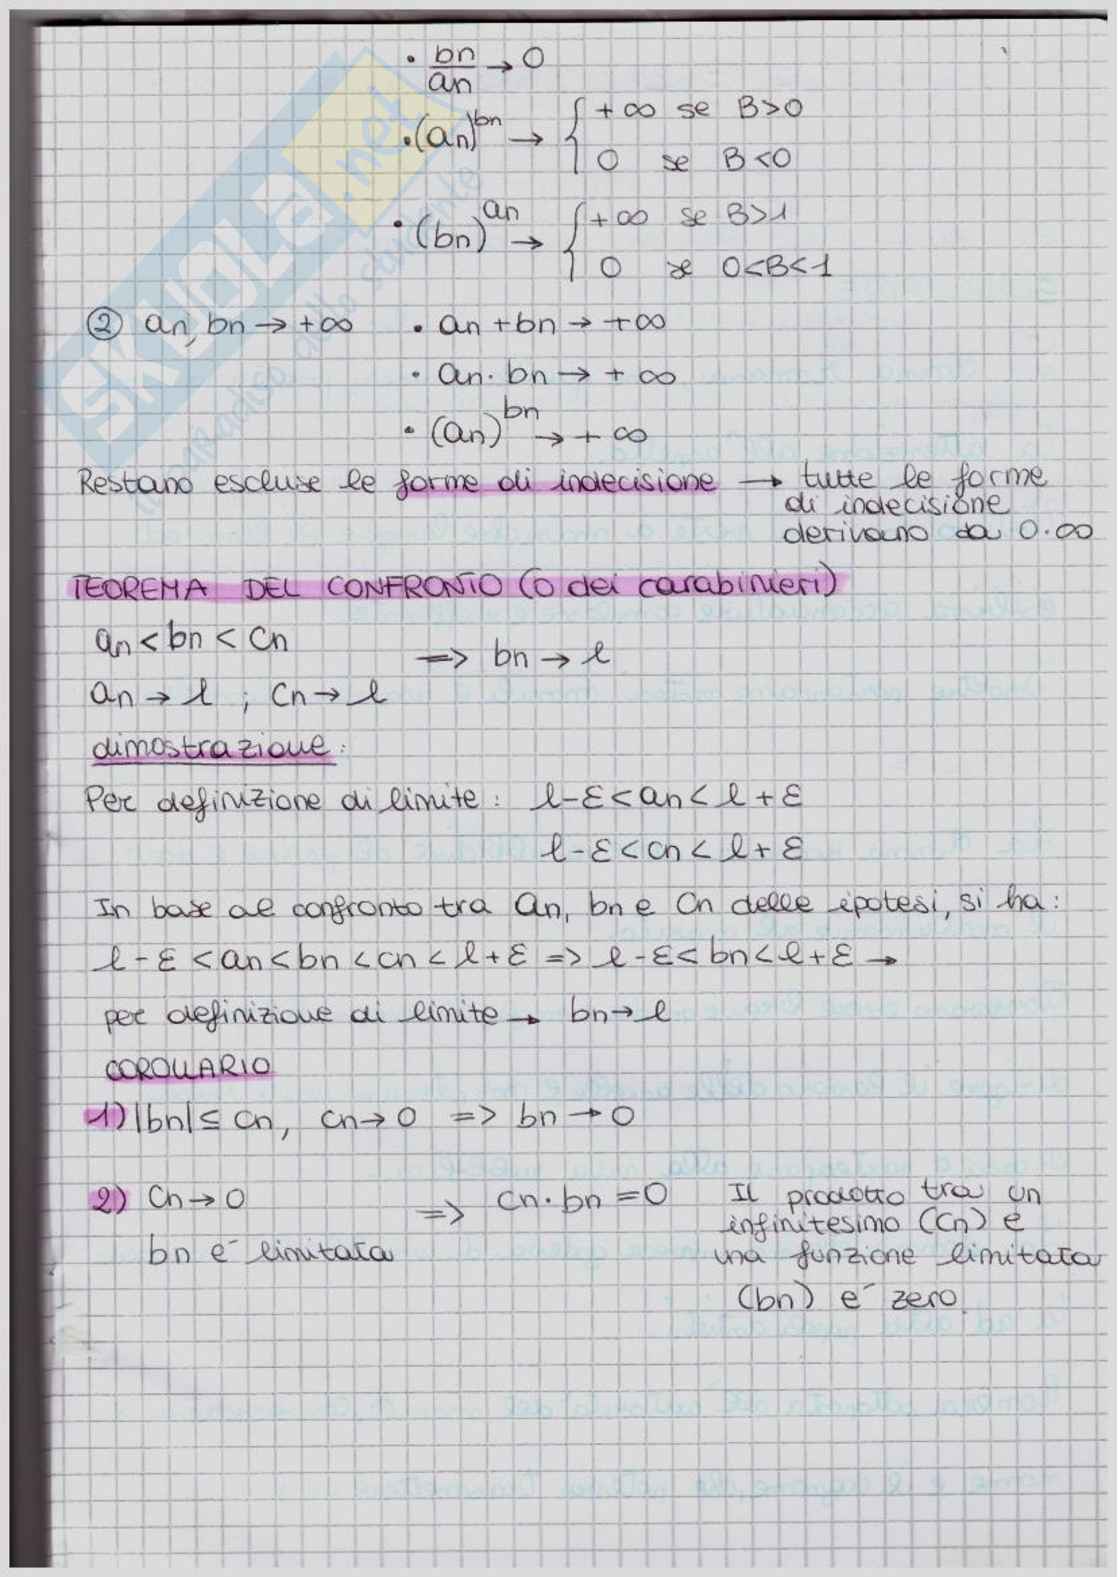 • bn/an → 0
• (an)^bn → { +∞ se B>0
0 se B<0
• (bn)^an → { +∞ se B>1
0 se 0<B<1
② an, bn → +∞ • an + bn → +∞
• an · bn → + ∞
• (an)^bn → + ∞
Restano escluse le forme di indecisione → tutte le forme
di indecisione
derivano da 0·∞
TEOREMA DEL CONFRONTO (o dei carabinieri)
an < bn < cn
=> bn → l
an → l ; cn → l
dimostrazione:
Per definizione di limite: l-ε < an < l + ε
l - ε < cn < l + ε
In base al confronto tra an, bn e cn delle ipotesi, si ha:
l - ε < an < bn < cn < l + ε => l - ε < bn < l + ε →
per definizione di limite → bn → l
COROLLARIO
1) |bn| ≤ cn, cn → 0 => bn → 0
2) cn → 0 => cn · bn = 0 Il prodotto tra un
infinitesimo (cn) e
bn e- limitata una funzione limitata
(bn) e- zero.
SKUOLA.net